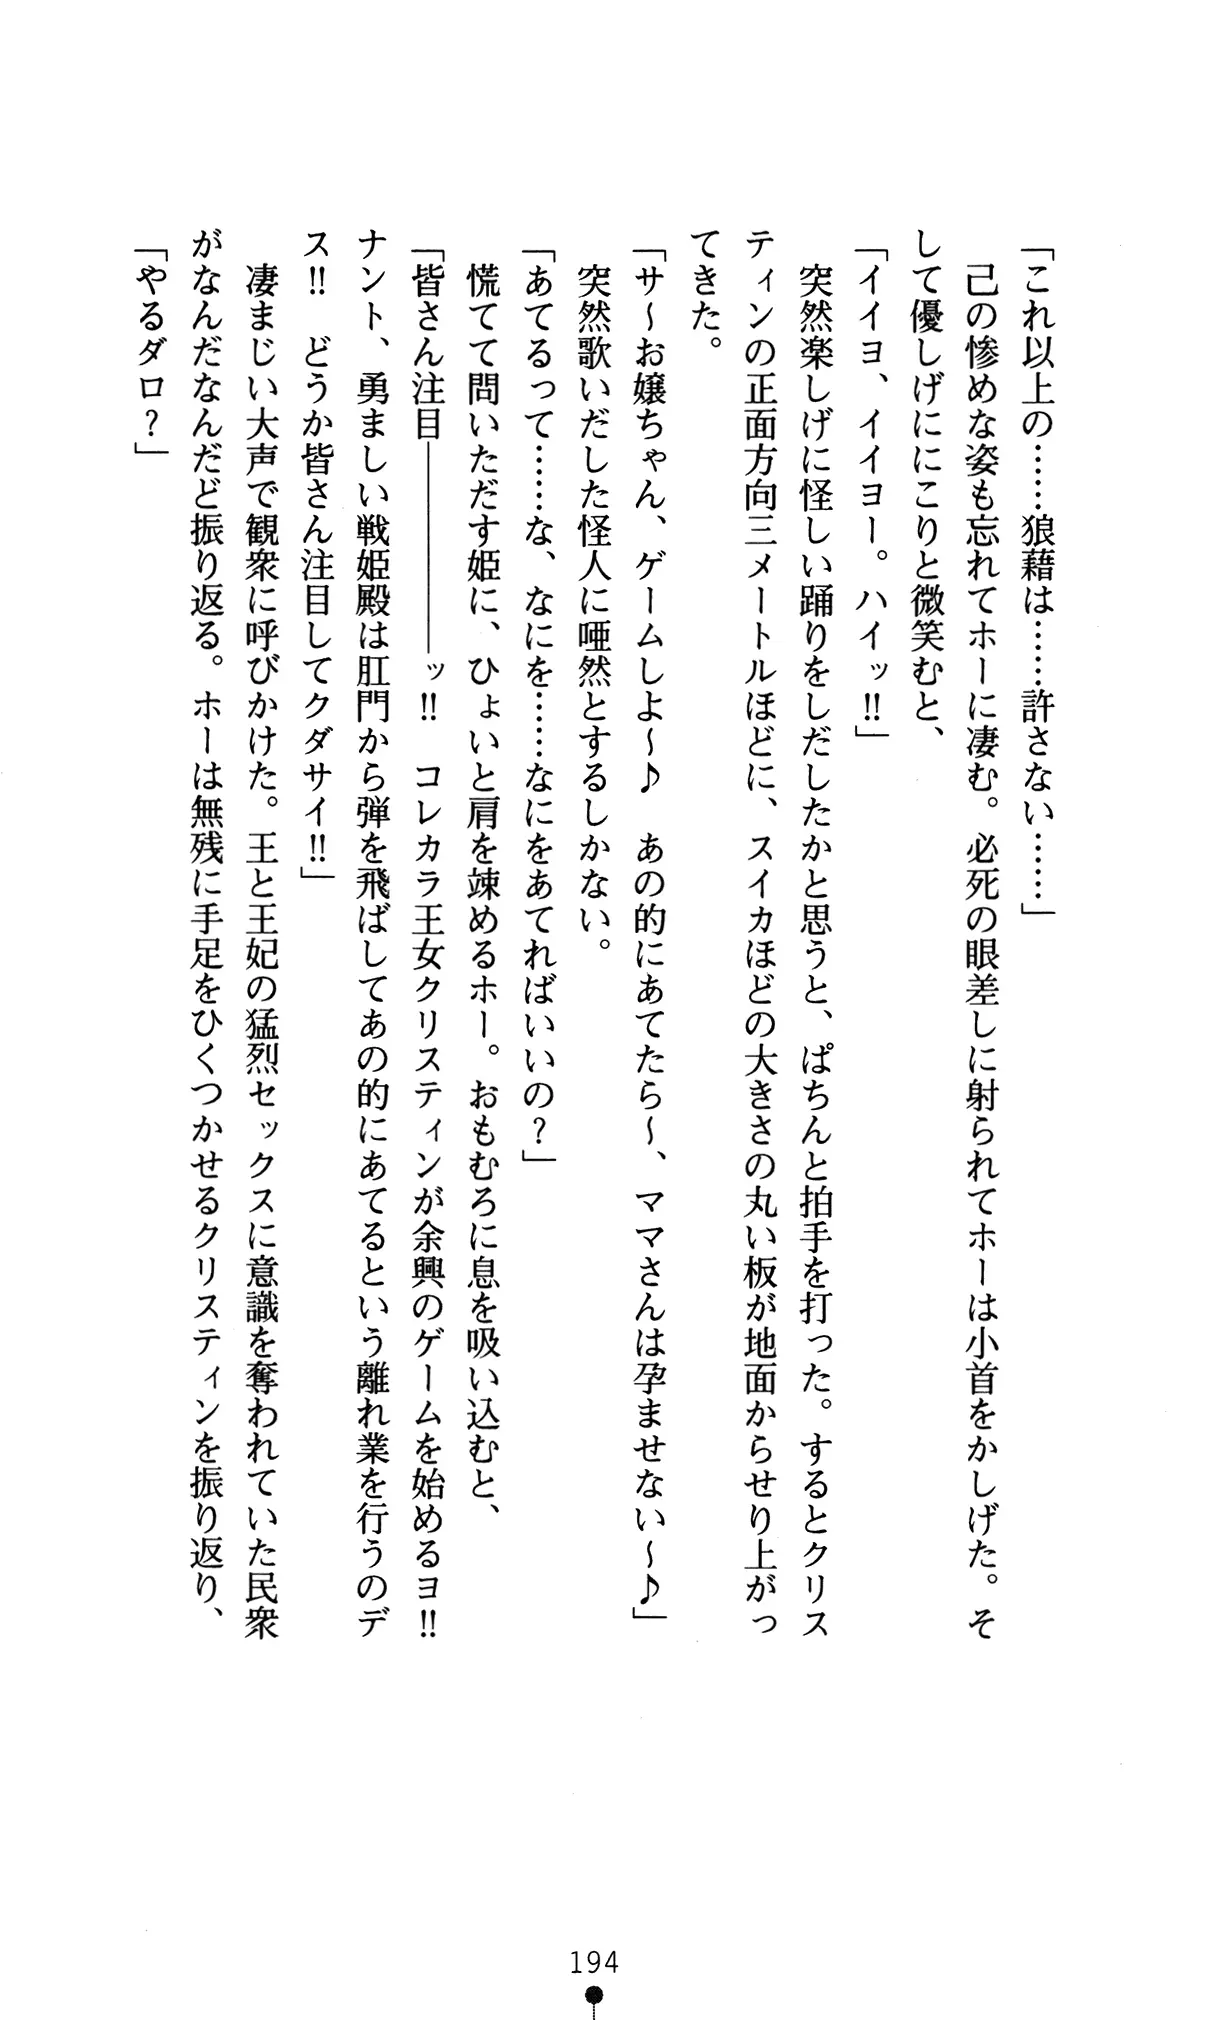 「これ以上の……狼藉は……許さない……」
　己の惨めな姿も忘れてホーに凄む。必死の眼差しに射られてホーは小首をかしげた。そ
して優しげににこりと微笑むと、
「イイヨ、イイヨー。ハイッ‼」
　突然楽しげに怪しい踊りをしだしたかと思うと、ぱちんと拍手を打った。するとクリス
ティンの正面方向三メートルほどに、スイカほどの大きさの丸い板が地面からせり上がっ
てきた。
「サ～お嬢ちゃん、ゲームしよ～♪　あの的にあてたら～、ママさんは孕ませない～♪」
　突然歌いだした怪人に唖然とするしかない。
「あてるって……な、なにを……なにをあてればいいの？」
　慌てて問いただす姫に、ひょいと肩を竦めるホー。おもむろに息を吸い込むと、
「皆さん注目――――――ッ‼　コレカラ王女クリスティンが余興のゲームを始めるヨ‼
ナント、勇ましい戦姫殿は肛門から弾を飛ばしてあの的にあてるという離れ業を行うのデ
ス‼　どうか皆さん注目してクダサイ‼」
　凄まじい大声で観衆に呼びかけた。王と王妃の猛烈セックスに意識を奪われていた民衆
がなんだなんだど振り返る。ホーは無残に手足をひくつかせるクリスティンを振り返り、
「やるダロ？」
194